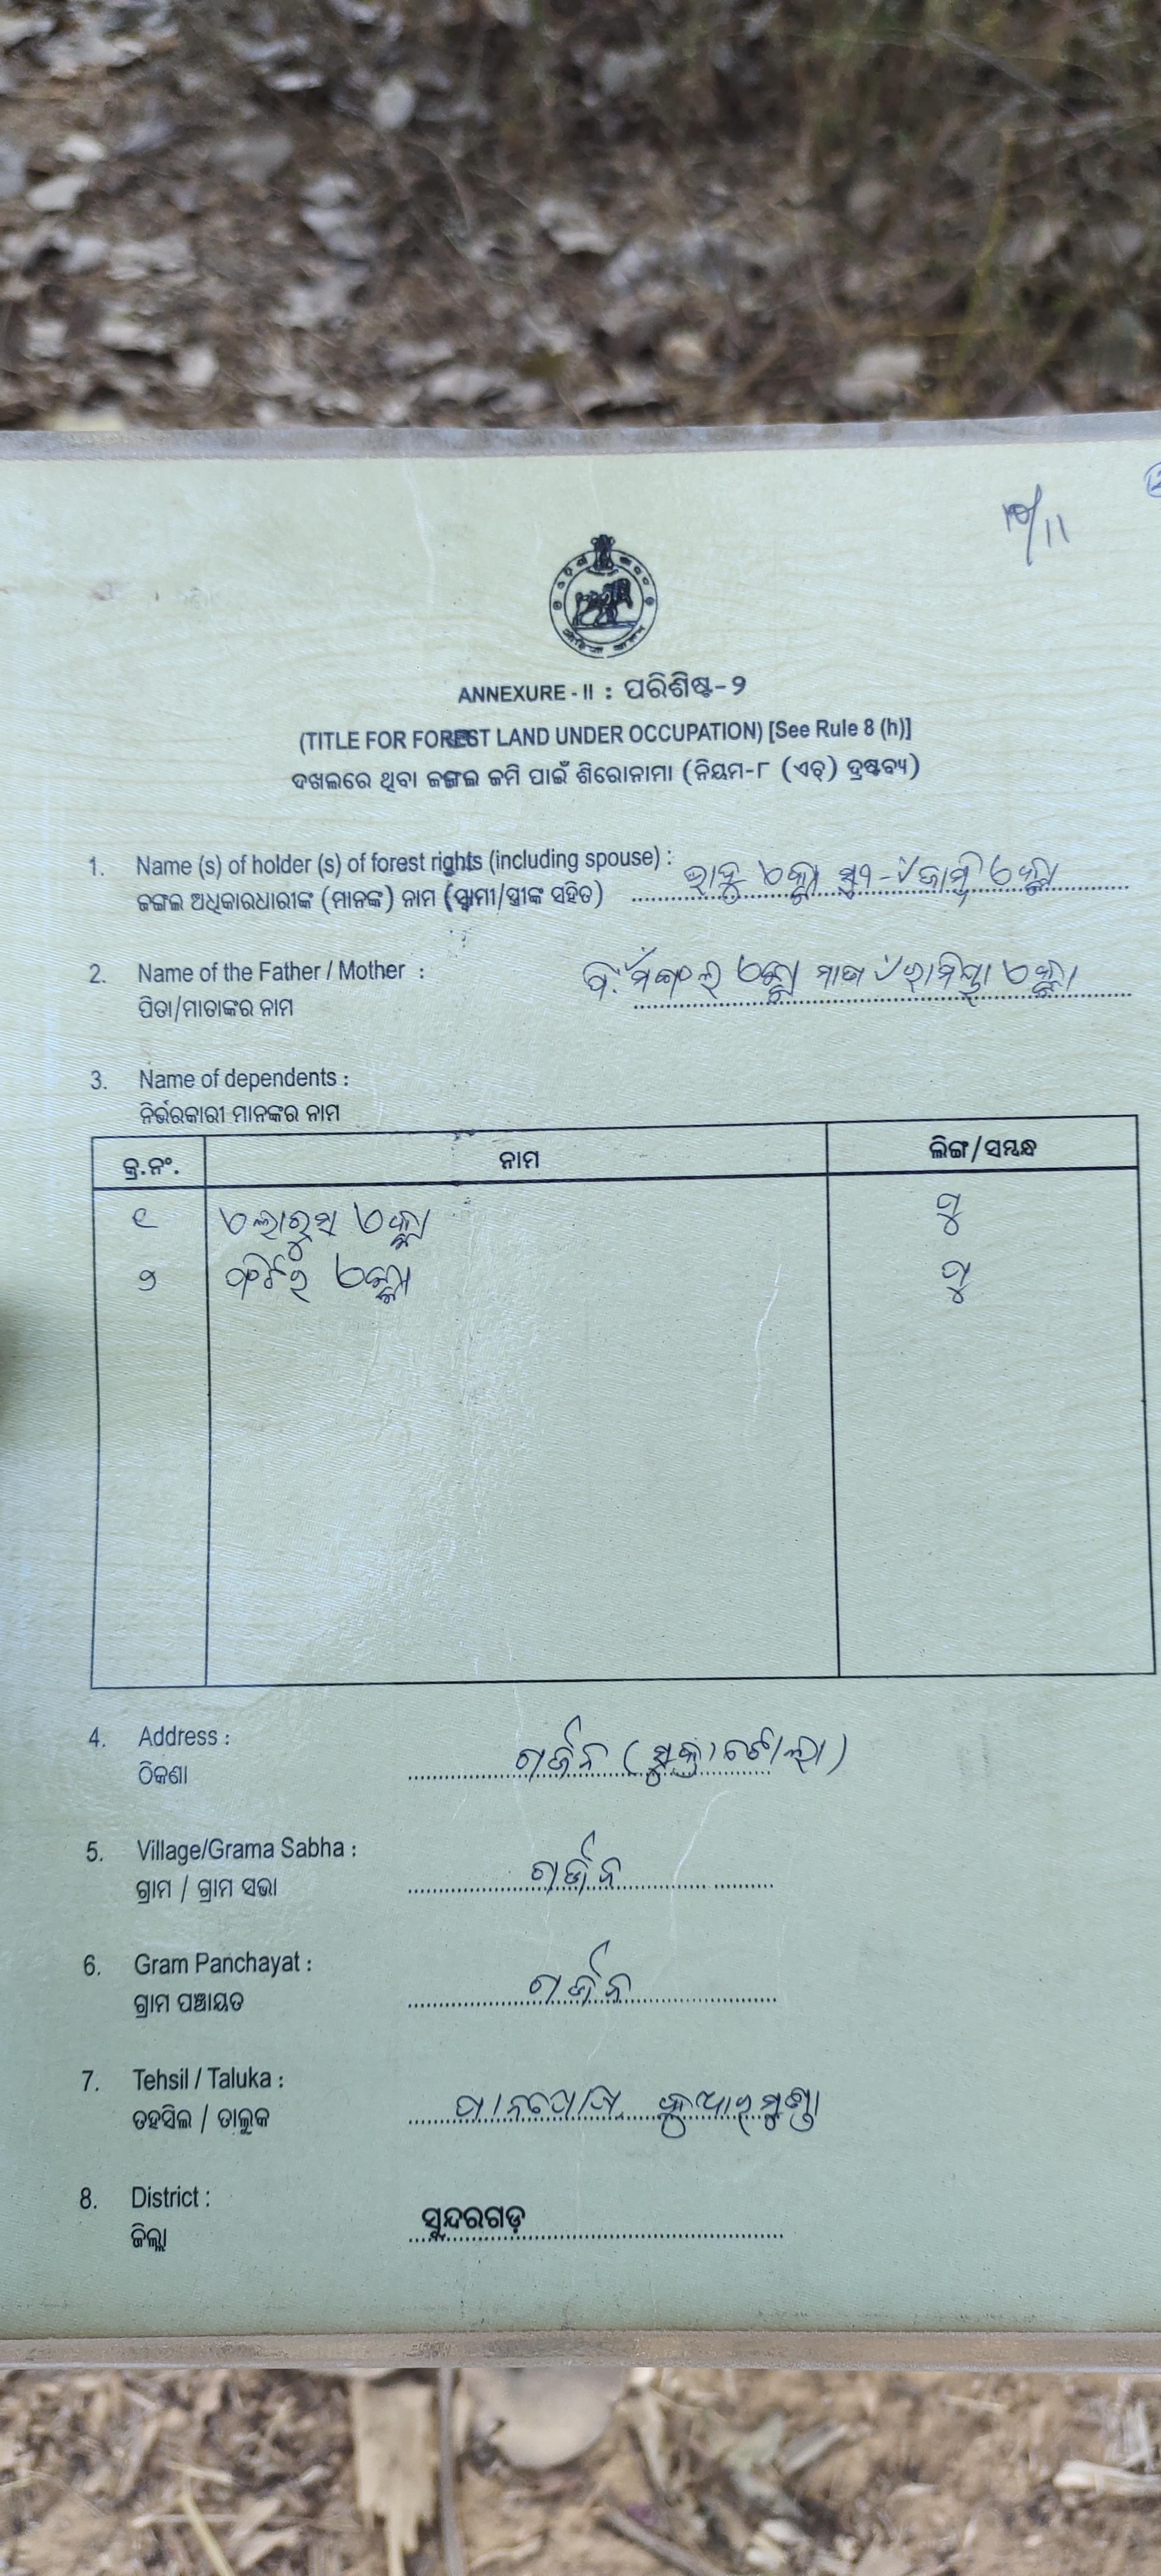 ANNEXURE - II : ପରିଶିଷ୍ଟ-୨
(TITLE FOR FOREST LAND UNDER OCCUPATION) [See Rule 8 (h)]
ଦଖଲରେ ଥିବା ଜଙ୍ଗଲ ଜମି ପାଇଁ ଶିରୋନାମା (ନିୟମ-୮ (ଏଚ୍) ଦ୍ରଷ୍ଟବ୍ୟ)
1. Name (s) of holder (s) of forest rights (including spouse) :
ଜଙ୍ଗଲ ଅଧିକାରଧାରୀଙ୍କ (ମାନଙ୍କ) ନାମ (ସ୍ୱାମୀ/ସ୍ତ୍ରୀଙ୍କ ସହିତ) ଏକ୍କା ଏକ୍କା
2. Name of the Father / Mother :
ପିତା/ମାତାଙ୍କର ନାମ ଏକ୍କା ଏକ୍କା
3. Name of dependents :
ନିର୍ଭରକାରୀ ମାନଙ୍କର ନାମ
କ୍ର.ନଂ. ନାମ ଲିଙ୍ଗ/ସମ୍ବନ୍ଧ
୧ ଏକ୍କା ପୁ
୨ ଏକ୍କା ପୁ
4. Address :
ଠିକଣା ଗର୍ଜନ
5. Village/Grama Sabha :
ଗ୍ରାମ / ଗ୍ରାମ ସଭା ଗର୍ଜନ
6. Gram Panchayat :
ଗ୍ରାମ ପଞ୍ଚାୟତ ଗର୍ଜନ
7. Tehsil / Taluka :
ତହସିଲ / ତାଲୁକ ପାନପୋଷ କୁଆରମୁଣ୍ଡା
8. District :
ଜିଲ୍ଲା ସୁନ୍ଦରଗଡ଼